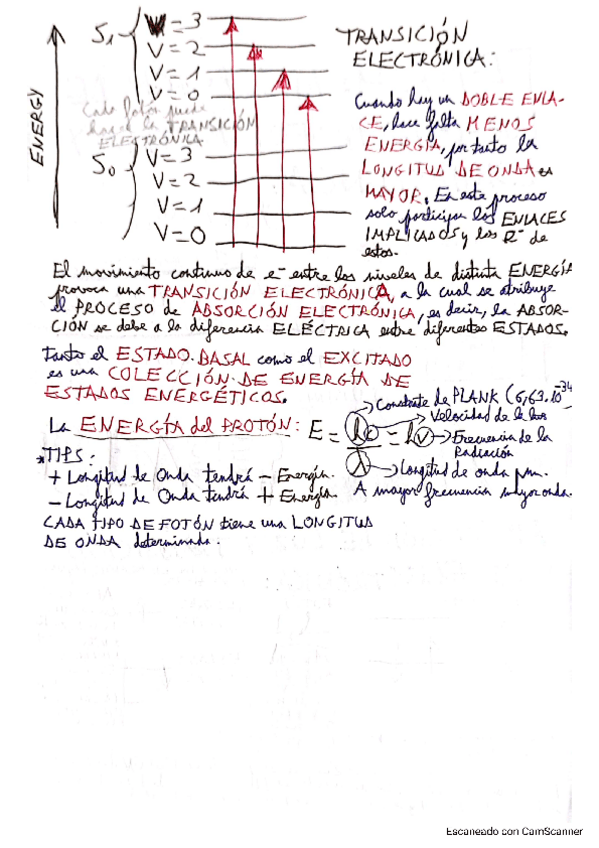 S₁
V=3
V=2
V=1
V=0
Cada fotón puede
hacer la TRANSICIÓN
ELECTRÓNICA
S₀
V=3
V=2
V=1
V=0
ENERGY
TRANSICIÓN
ELECTRÓNICA:
Cuando hay un DOBLE ENLA-
CE, hace falta MENOS
ENERGÍA, por tanto la
LONGITUD DE ONDA es
MAYOR. En este proceso
solo participan los ENLACES
IMPLICADOS y los e⁻ de
estos.
El movimiento continuo de e⁻ entre los niveles de distinta ENERGÍA
provoca una TRANSICIÓN ELECTRÓNICA, a la cual se atribuye
el PROCESO de ABSORCIÓN ELECTRÓNICA, es decir, la ABSOR-
CIÓN se debe a la diferencia ELÉCTRICA entre diferentes ESTADOS.
tanto el ESTADO BASAL como el EXCITADO
es una COLECCIÓN DE ENERGÍA DE
ESTADOS ENERGÉTICOS.
La ENERGÍA del PROTÓN: E = hc/λ = hν
Constante de PLANK (6,63.10⁻³⁴
Velocidad de la luz
Frecuencia de la
Radiación
Longitud de onda nm.
A mayor frecuencia mayor onda.
*TIPS:
+ Longitud de Onda tendrá – Energía.
– Longitud de Onda tendrá + Energía.
CADA TIPO DE FOTÓN tiene una LONGITUD
DE ONDA determinada.
Escaneado con CamScanner